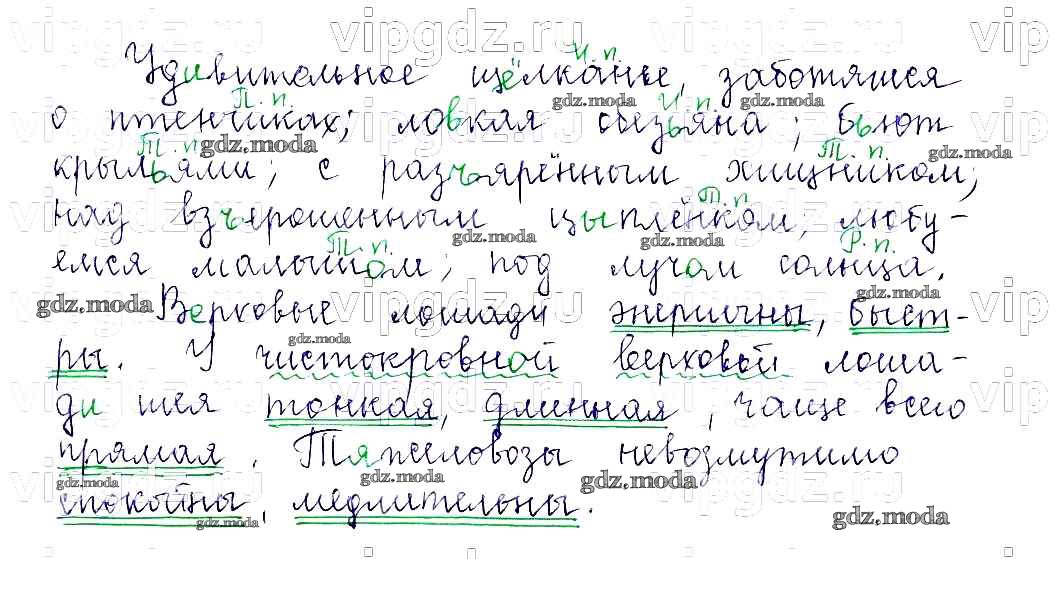 Удивительное щёлканье, заботящиеся
И. п.
о птенчиках; ловкая обезьяна; бьют
П. п. И. п.
крыльями; с разъярённым хищником;
Т. п. Т. п.
над взъерошенным цыплёнком; любу-
Т. п.
емся малышом; под лучом солнца.
Т. п. Р. п.
Верховые лошади энергичны, быст-
ры. У чистокровной верховой лоша-
ди шея тонкая, длинная, чаще всего
прямая. Тяжеловозы невозмутимо
спокойны, медлительны.
vipgdz.ru
gdz.moda